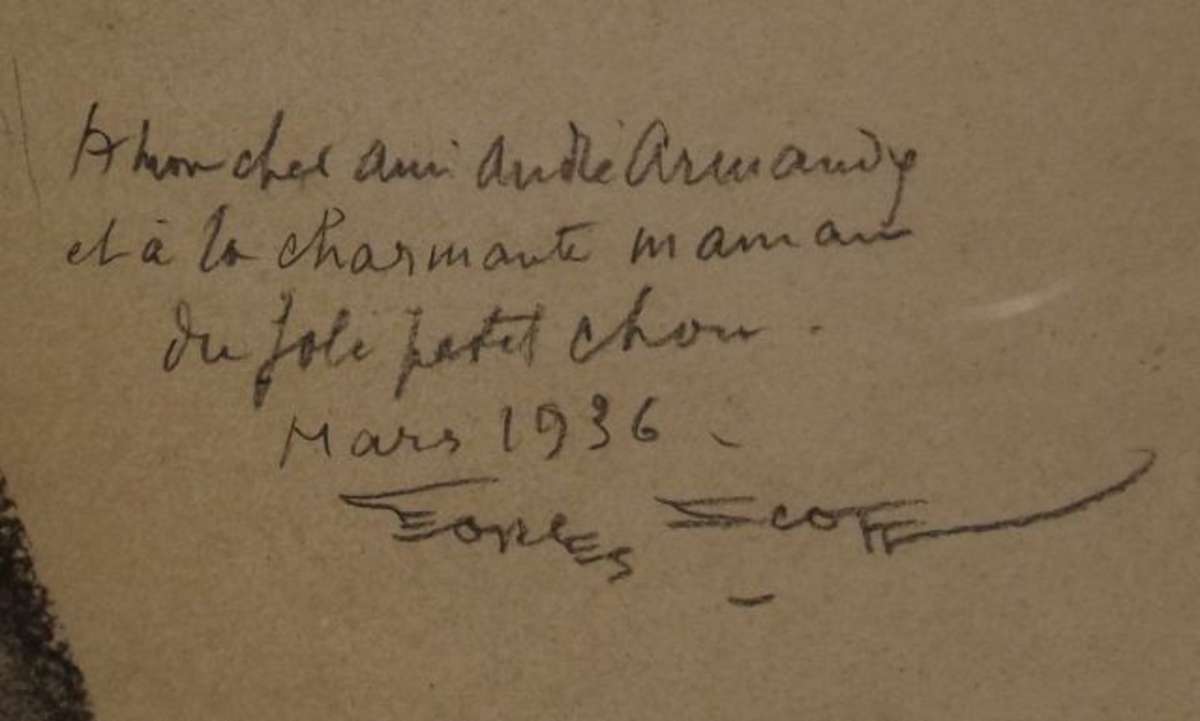 A mon cher ami André Armandy
et à la charmante maman
du joli petit chou.
Mars 1936.
Georges Scott